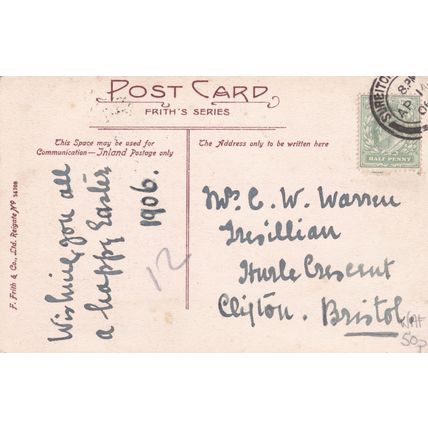 POST CARD
FRITH'S SERIES
This Space may be used for
Communication—Inland Postage only
The Address only to be written here
Wishing you all
a happy Easter
1906.
12
F. Frith & Co., Ltd. Reigate Nº
Mrs C. W. Warren
Tresillian
Hurle Crescent
Clifton. Bristol.
HALF PENNY
8 PM
AP 14
50p